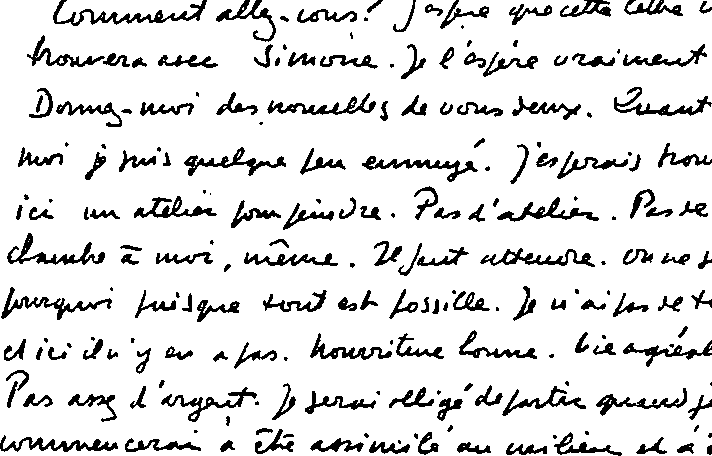 Comment allez-vous? J'espère que cette lettre v
trouvera avec Simone. Je l'espère vraiment
Donnez-moi des nouvelles de vous deux. Quant
moi je suis quelque peu ennuyé. J'espérais trou
ici un atelier pour peindre. Pas d'atelier. Pas de
chambre à moi, même. Il faut attendre. On ne s
pourquoi puisque tout est possible. Je n'ai pas de t
et ici il n'y en a pas. Nourriture bonne. Vie agréab
Pas assez d'argent. Je serai obligé de partir quand j
commencerai à être assimilé au milieu et à